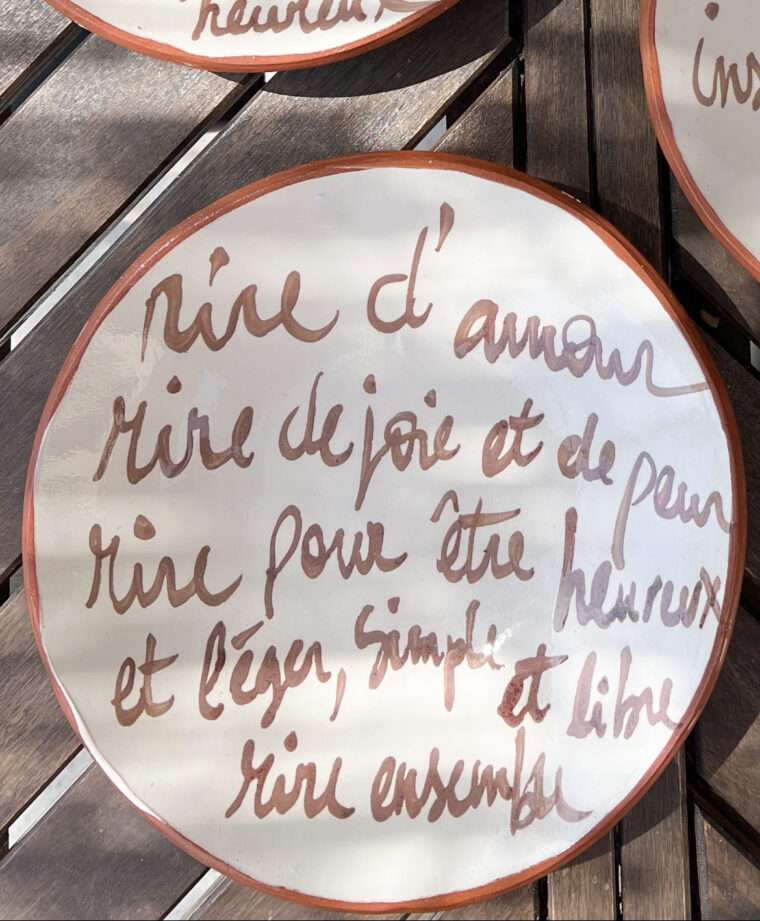 heureux
ins
rire d'amour
rire de joie et de peur
rire pour être heureux
et léger, simple et libre
rire ensemble